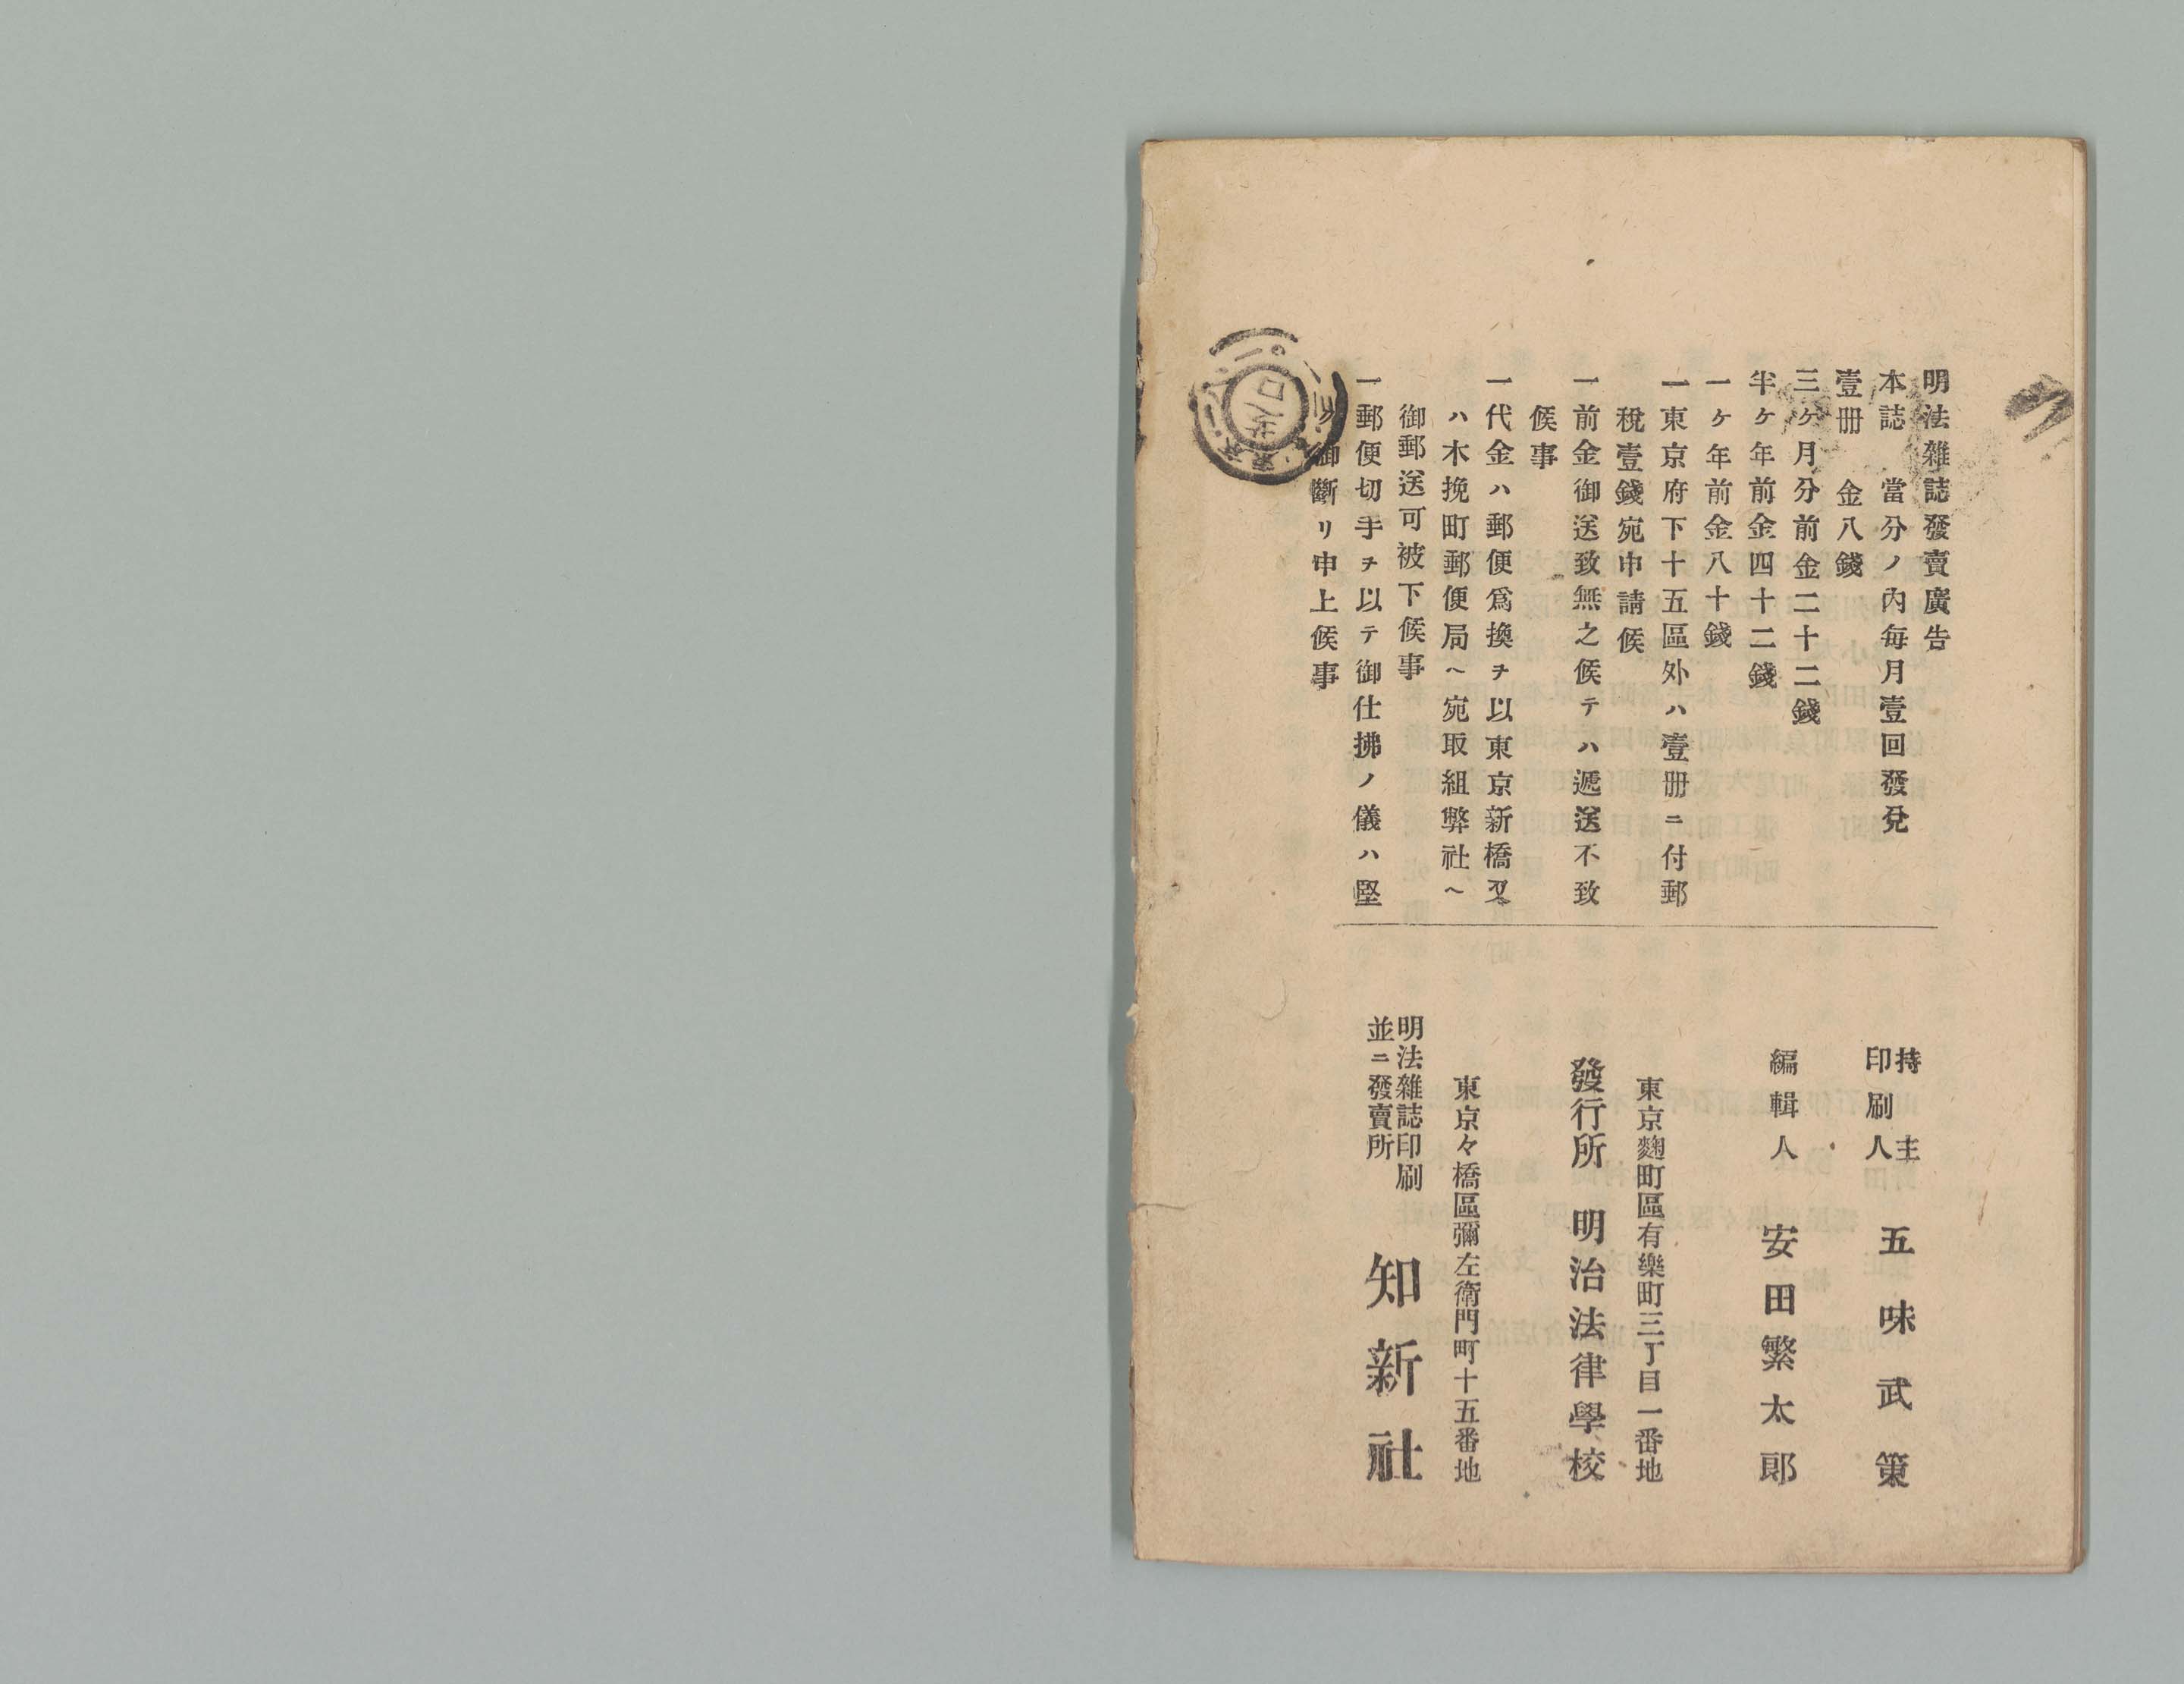 明法雜誌發賣廣告
本誌 當分ノ內每月壹回發兌
壹冊 金八錢
三ヶ月分前金二十二錢
半ケ年前金四十二錢
一ケ年前金八十錢
一東京府下十五區外ハ壹冊ニ付郵
稅壹錢宛申請候
一前金御送致無之候テハ遞送不致
候事
一代金ハ郵便爲換ヲ以東京新橋又
ハ木挽町郵便局ヘ宛取組弊社ヘ
御郵送可被下候事
一郵便切手ヲ以テ御仕拂ノ儀ハ堅
ク御斷リ申上候事
持主
印刷人 五味武策
編輯人 安田繁太郎
東京麴町區有樂町三丁目一番地
發行所 明治法律學校
東京々橋區彌左衛門町十五番地
明法雜誌印刷
並ニ發賣所 知新社